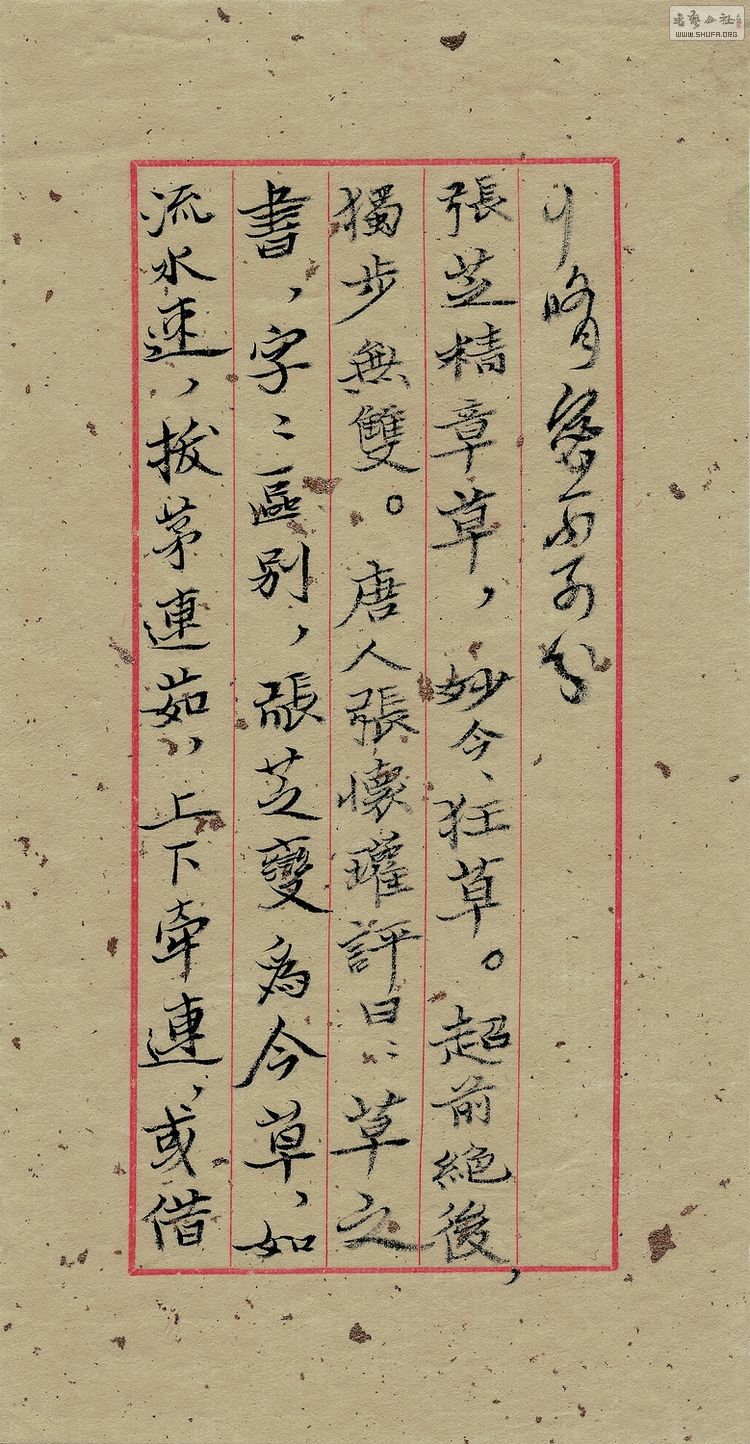 張芝精章草，妙今、狂草。超前絕後，
獨步無雙。唐人張懷瓘評曰：草之
書，字〻區別，張芝變為今草，如
流水速，拔茅連茹，上下牽連，或借
書藝公社
WWW.SHUFA.ORG